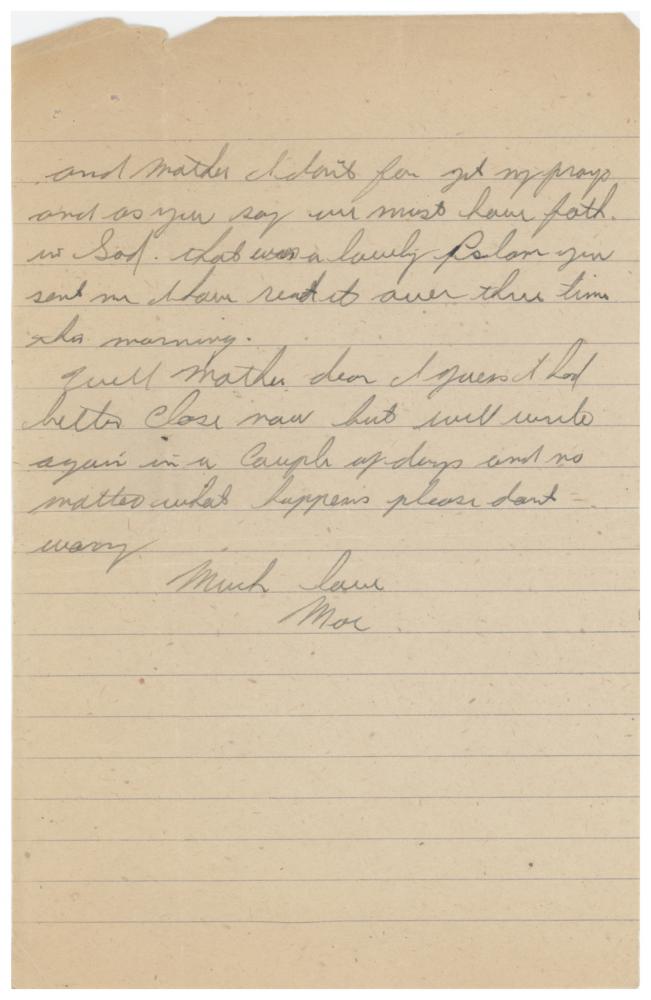 and Mother I dont for get my prays
and as you say we must have fath.
in God. that was a lovely Pslam you
sent me I have read it over three time
this morning.
Well Mother dear I guess I had
better close now but will write
again in a couple of days and no
matter what happens please dont
worry
Much love
Moe